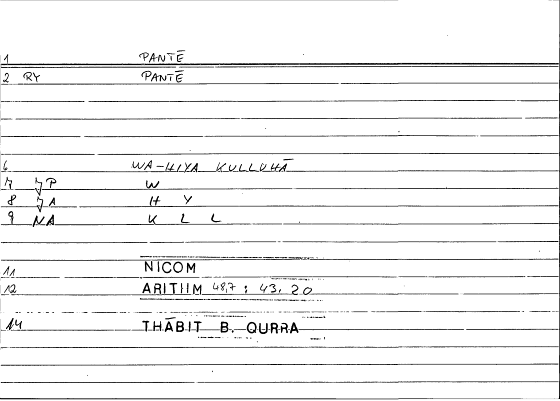 1 PANTĒ
2 RY PANTĒ
6 WA-HIYA KULLUHĀ
7 P W
8 A H Y
9 NA K L L
11 NICOM
12 ARITHM 48,7 : 43.20
14 THĀBIT B. QURRA